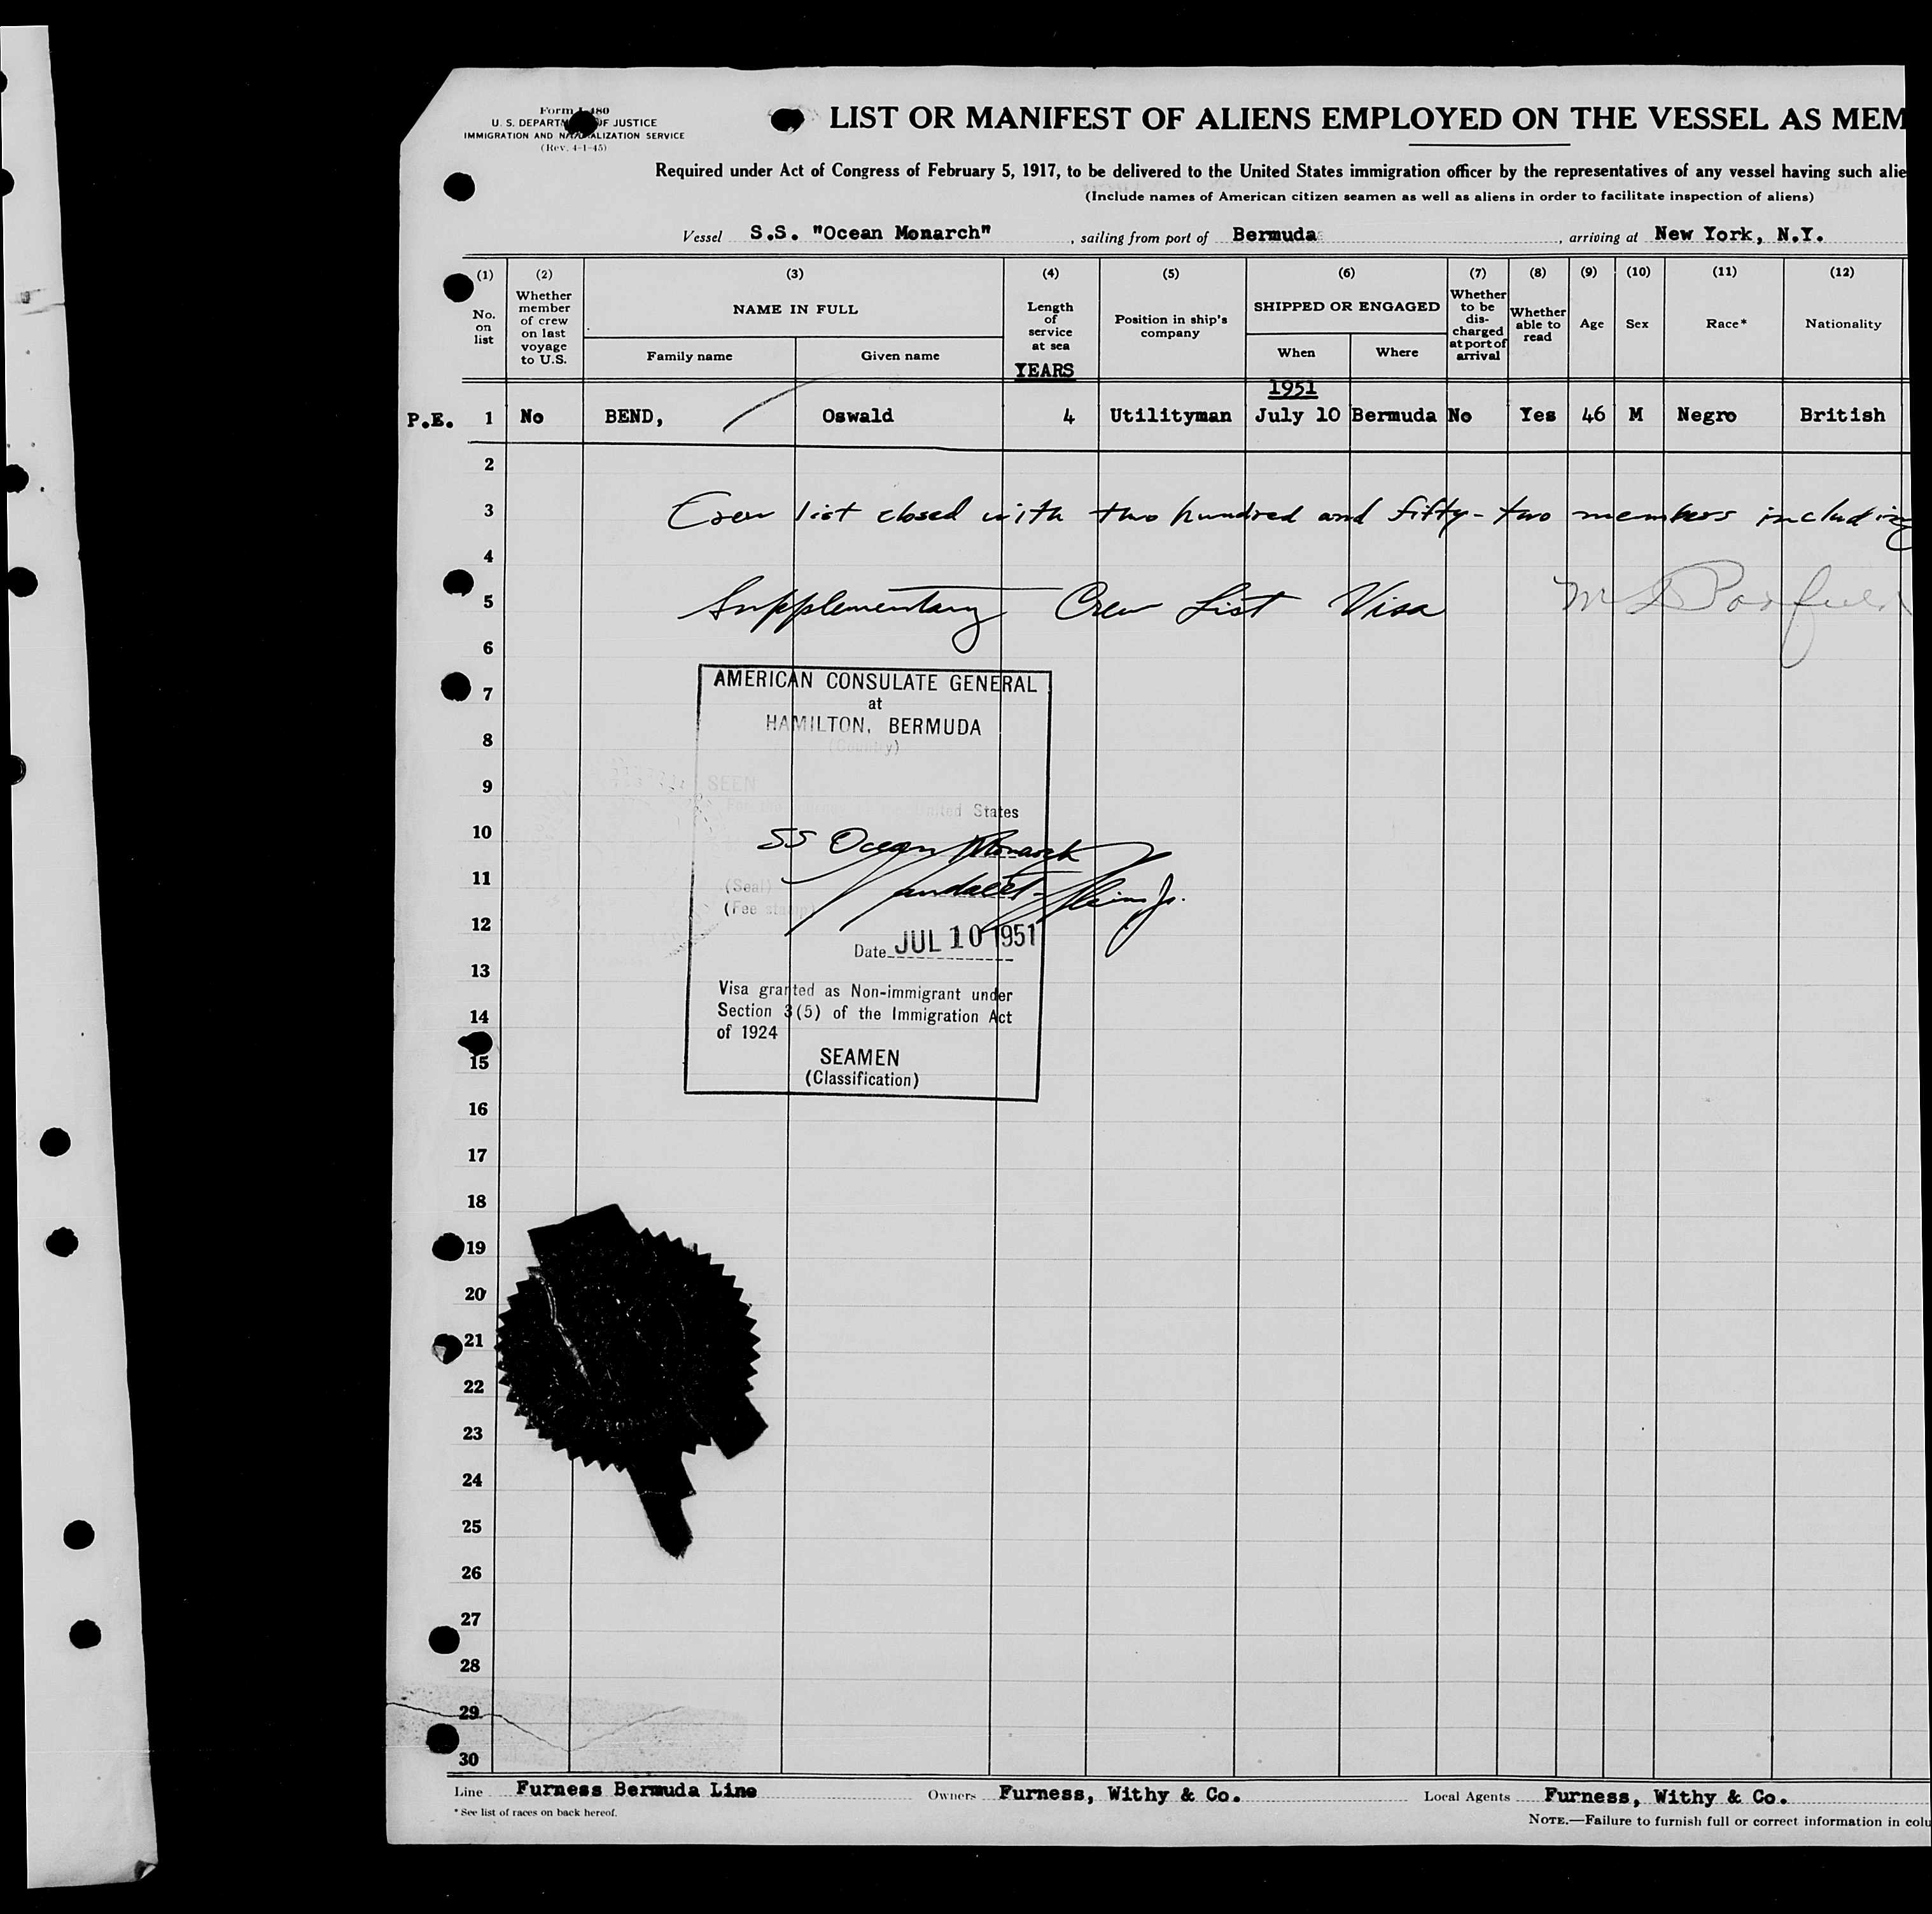 Form I-480
U. S. DEPARTMENT OF JUSTICE
IMMIGRATION AND NATURALIZATION SERVICE
(Rev. 4-1-45)
LIST OR MANIFEST OF ALIENS EMPLOYED ON THE VESSEL AS MEM
Required under Act of Congress of February 5, 1917, to be delivered to the United States immigration officer by the representatives of any vessel having such alie
(Include names of American citizen seamen as well as aliens in order to facilitate inspection of aliens)
Vessel S.S. "Ocean Monarch", sailing from port of Bermuda, arriving at New York, N.Y.
(1) (2) (3) (4) (5) (6) (7) (8) (9) (10) (11) (12)
No. on list
Whether member of crew on last voyage to U.S.
NAME IN FULL
Family name
Given name
Length of service at sea
YEARS
Position in ship's company
SHIPPED OR ENGAGED
When
Where
Whether to be dis-charged at port of arrival
Whether able to read
Age
Sex
Race*
Nationality
1951
P.E. 1 No BEND, Oswald 4 Utilityman July 10 Bermuda No Yes 46 M Negro British
2
3 Crew list closed with two hundred and fifty-two members including
4
5 Supplementary Crew List Visa
6
7
8
9
10
11
12
13
14
15
16
17
18
19
20
21
22
23
24
25
26
27
28
29
30
AMERICAN CONSULATE GENERAL
at
HAMILTON, BERMUDA
(Country)
SEEN
For the journey to the United States
SS Ocean Monarch
(Seal)
(Fee stamp)
Date JUL 10 1951
Visa granted as Non-immigrant under
Section 3(5) of the Immigration Act
of 1924
SEAMEN
(Classification)
Line Furness Bermuda Line Owners Furness, Withy & Co. Local Agents Furness, Withy & Co.
* See list of races on back hereof.
NOTE.—Failure to furnish full or correct information in colu